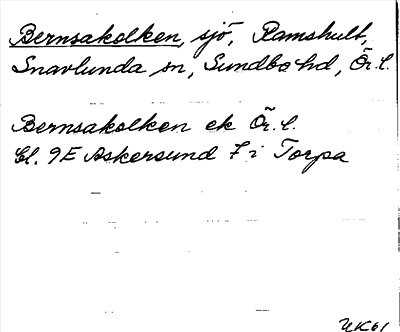 Bernsakolken, sjö, Ramshult,
Snavlunda sn, Sundbo hd, Ör. l.
Bernsakolken ek Ör. l.
Bl. 9E Askersund 7 i Torpa
UK61